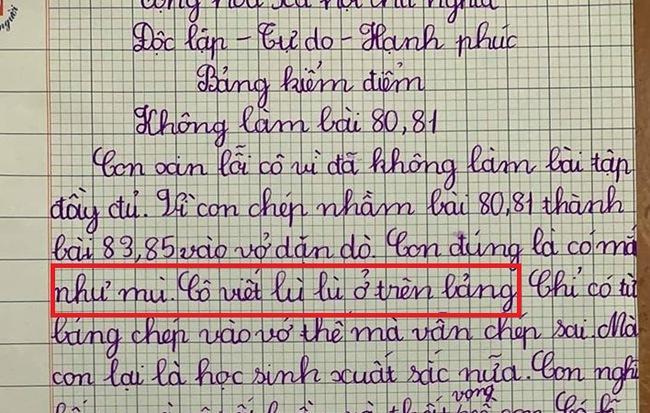 người
Cộng hòa xã hội chủ nghĩa
Độc lập - Tự do - Hạnh phúc
Bảng kiểm điểm
Không làm bài 80,81
Con xin lỗi cô vì đã không làm bài tập
đầy đủ. Vì con chép nhầm bài 80,81 thành
bài 83,85 vào vở dặn dò. Con đúng là có mắ
như mù. Cô viết lù lù ở trên bảng. Chỉ có từ
bảng chép vào vở thế mà vẫn chép sai. Mà
con lại là học sinh xuất sắc nữa. Con nghĩ
vọng